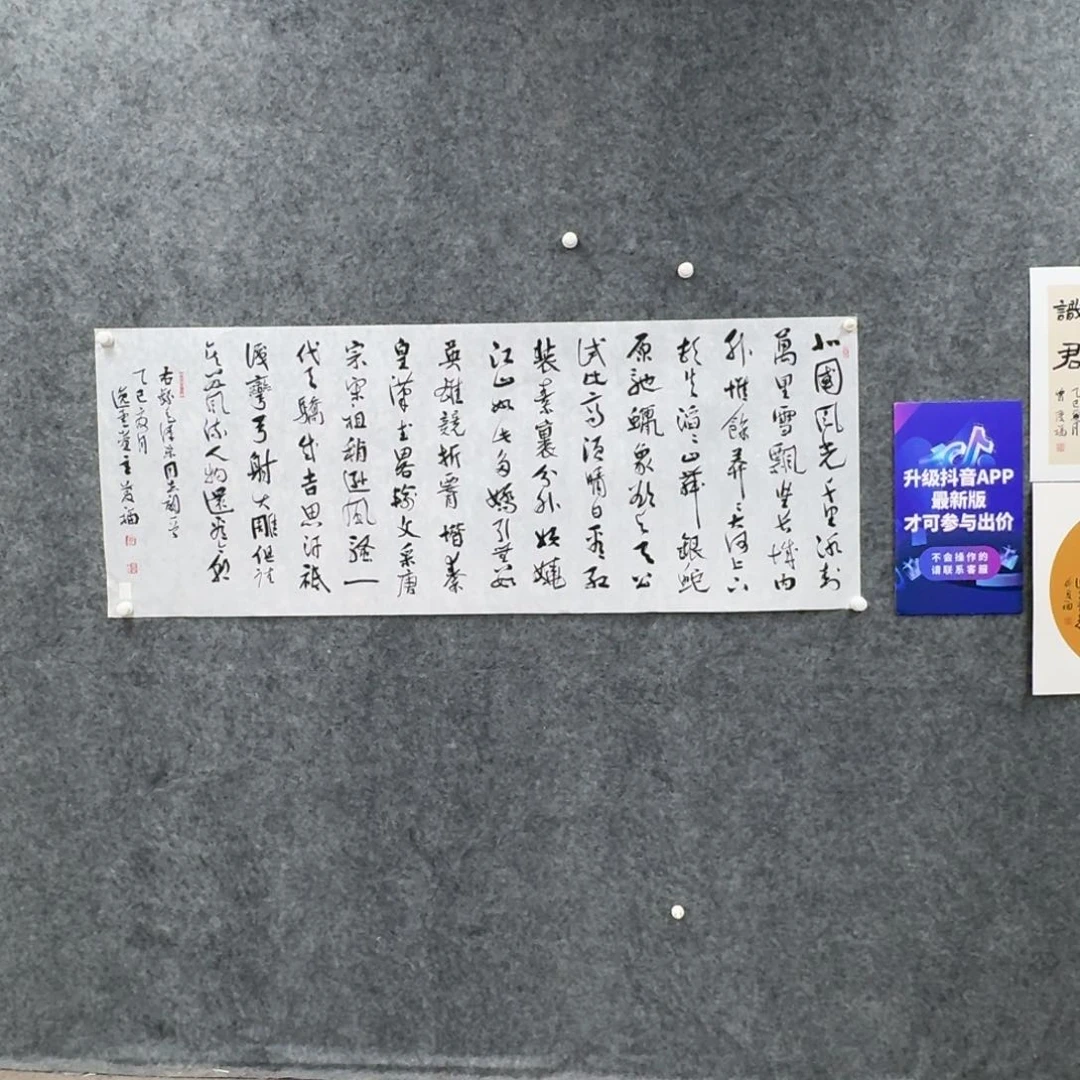 北國風光千里冰封
萬里雪飄望長城內
外惟餘莽々大河上下
頓失滔々山舞銀蛇
原馳蠟象欲與天公
試比高須晴日看紅
裝素裹分外妖嬈
江山如此多嬌引無數
英雄競折腰惜秦
皇漢武略輸文采唐
宗宋祖稍遜風騷一
代天驕成吉思汗祇
識彎弓射大雕俱往
矣數風流人物還看今朝
右錄毛澤東同志詞一首
乙巳夏月
逸雲堂主
升级抖音APP
最新版
才可参与出价
不会操作的
请联系客服
識
君